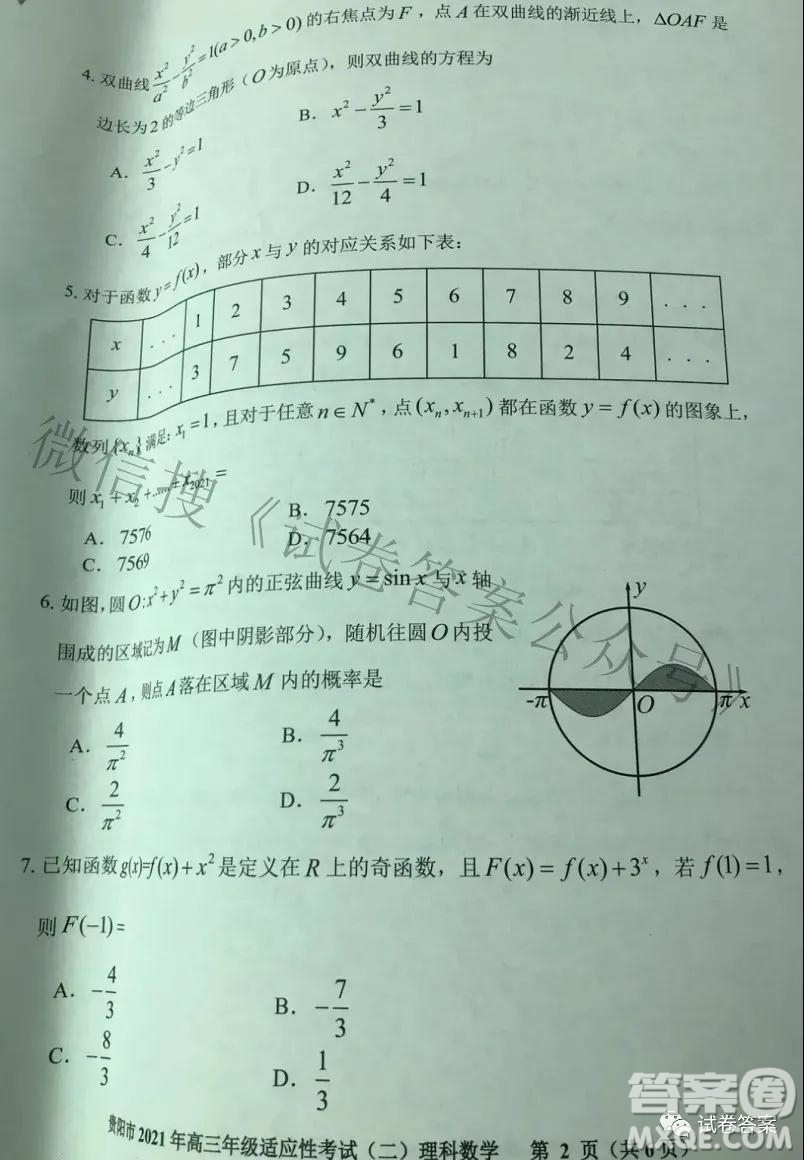 4. 双曲线 x²/a² - y²/b² = 1(a>0,b>0) 的右焦点为 F，点 A 在双曲线的渐近线上，△OAF 是
边长为2的等边三角形（O为原点），则双曲线的方程为
A. x²/3 - y² = 1
B. x² - y²/3 = 1
C. x²/4 - y²/12 = 1
D. x²/12 - y²/4 = 1
5. 对于函数 y=f(x)，部分 x 与 y 的对应关系如下表：
x ... 1 2 3 4 5 6 7 8 9 ...
y ... 3 7 5 9 6 1 8 2 4 ...
数列{xₙ}满足：x₁=1，且对于任意 n∈N*，点 (xₙ,xₙ₊₁) 都在函数 y=f(x) 的图象上，
则 x₁+x₂+......+x₂₀₂₁=
A. 7576
B. 7575
C. 7569
D. 7564
6. 如图，圆O:x²+y²=π²内的正弦曲线 y=sin x 与 x 轴
围成的区域记为M（图中阴影部分），随机往圆 O 内投
一个点 A，则点A落在区域 M 内的概率是
A. 4/π²
B. 4/π³
C. 2/π²
D. 2/π³
y
-π O π x
7. 已知函数g(x)=f(x)+x²是定义在 R 上的奇函数，且 F(x)=f(x)+3ˣ，若 f(1)=1，
则 F(-1)=
A. -4/3
B. -7/3
C. -8/3
D. 1/3
贵阳市2021年高三年级适应性考试（二）理科数学 第 2 页（共6页）
微信搜《试卷答案公众号》
答案圈
试卷答案
MXQE.COM